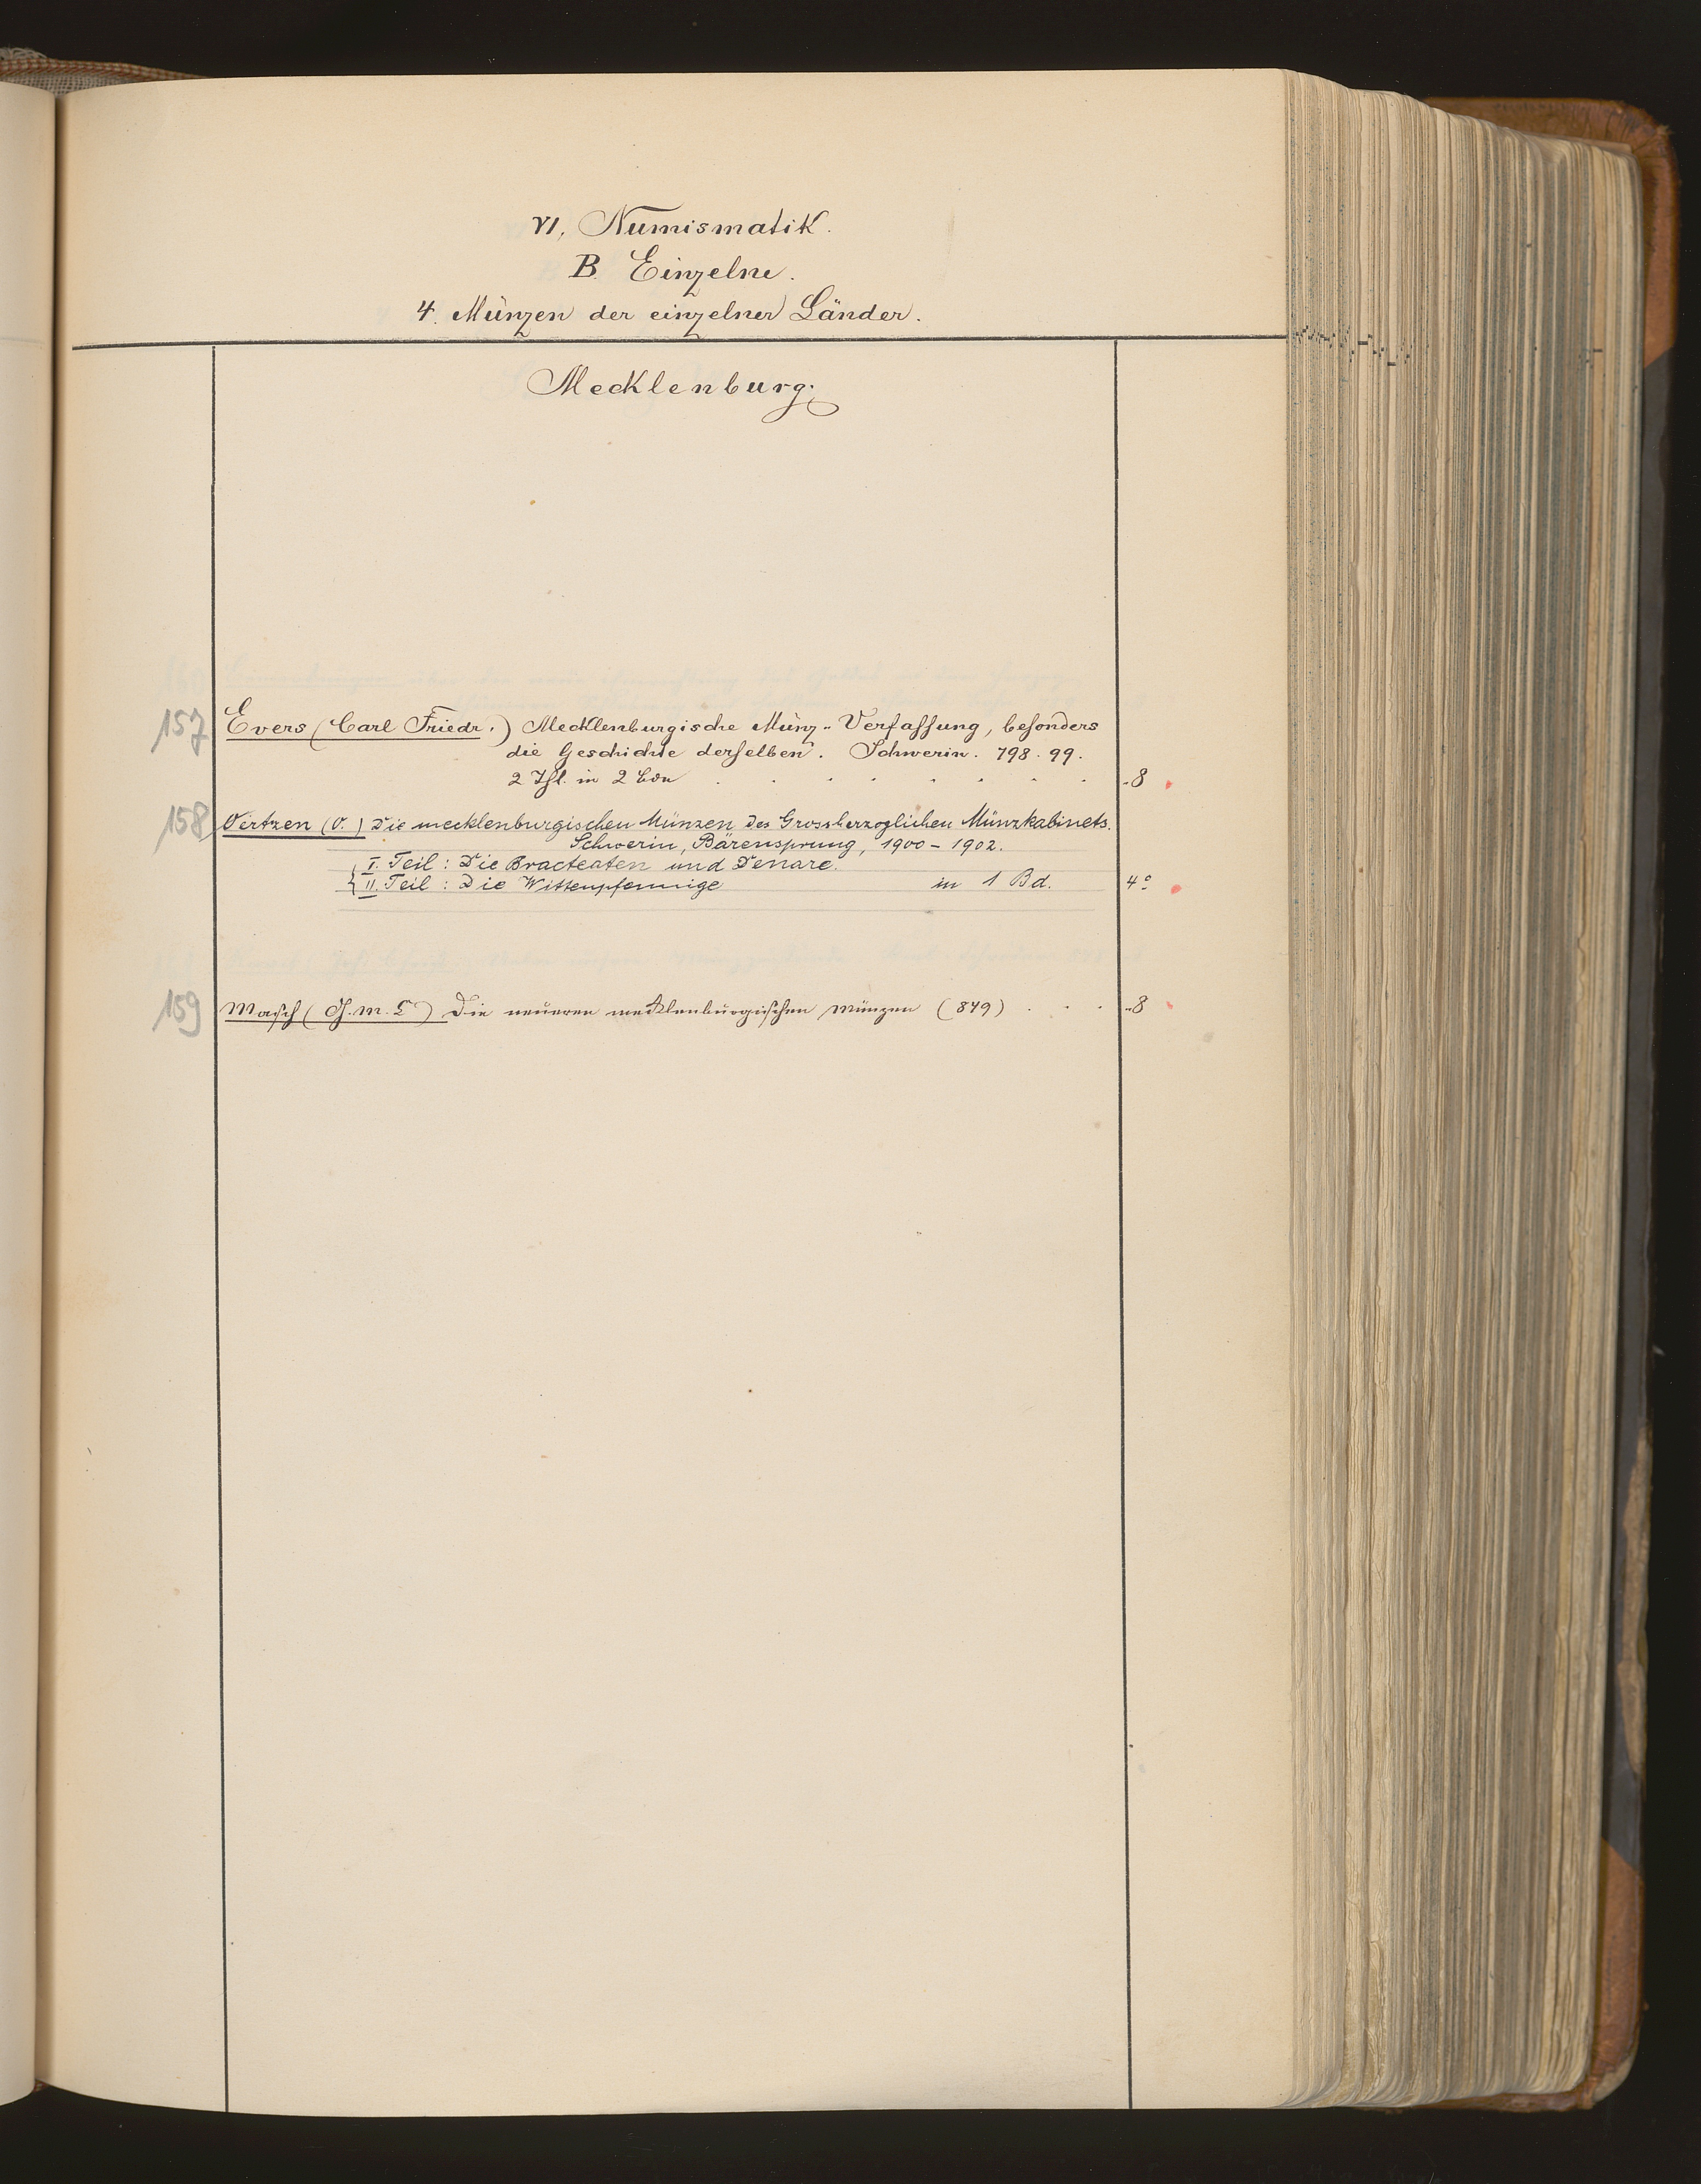 VI. Numismatik.
B. Einzelne.
4. Münzen der einzelner Länder.
Mecklenburg.
157 Evers (Carl Friedr.) Mecklenburgische Münz-Verfaſſung, beſonders
die Geschichte derſelben. Schwerin. 798. 99.
2 Thl. in 2 Bdn . . . . . . . . -8
158 Oertzen (O.) Die mecklenburgischen Münzen des Grossherzoglichen Münzkabinets.
Schwerin, Bärensprung, 1900-1902.
I. Teil: Die Bracteaten und Denare.
II. Teil: Die Wittenpfennige in 1 Bd. 4°
159 Maſch (G. M. C.) Die neueren mecklenburgiſchen Münzen (849) . . . -8